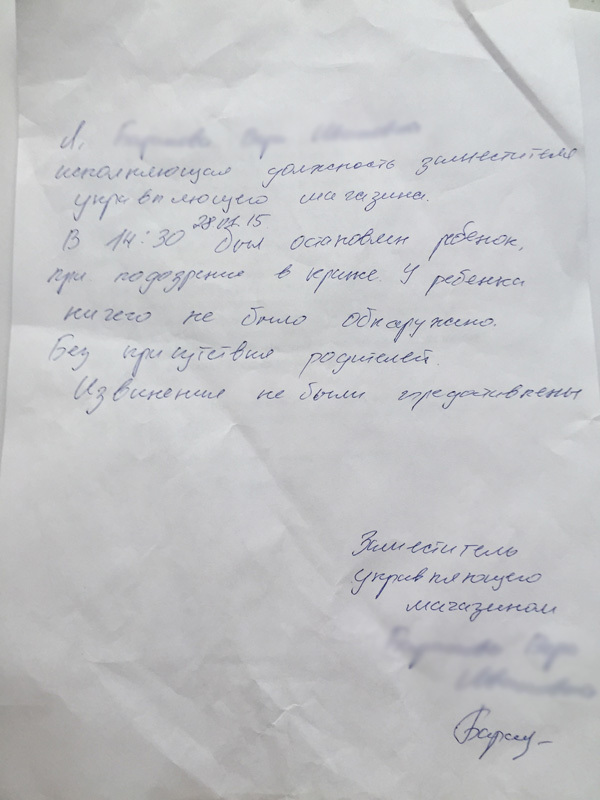 Я,
исполняющая должность заместителя
управляющего магазина.
28.01.15
В 14:30 был остановлен ребенок,
при подозрение в краже. У ребенка
ничего не было обнаружено.
Без присутствия родителей.
Извинения не были предоставлены
Заместитель
управляющего
магазином